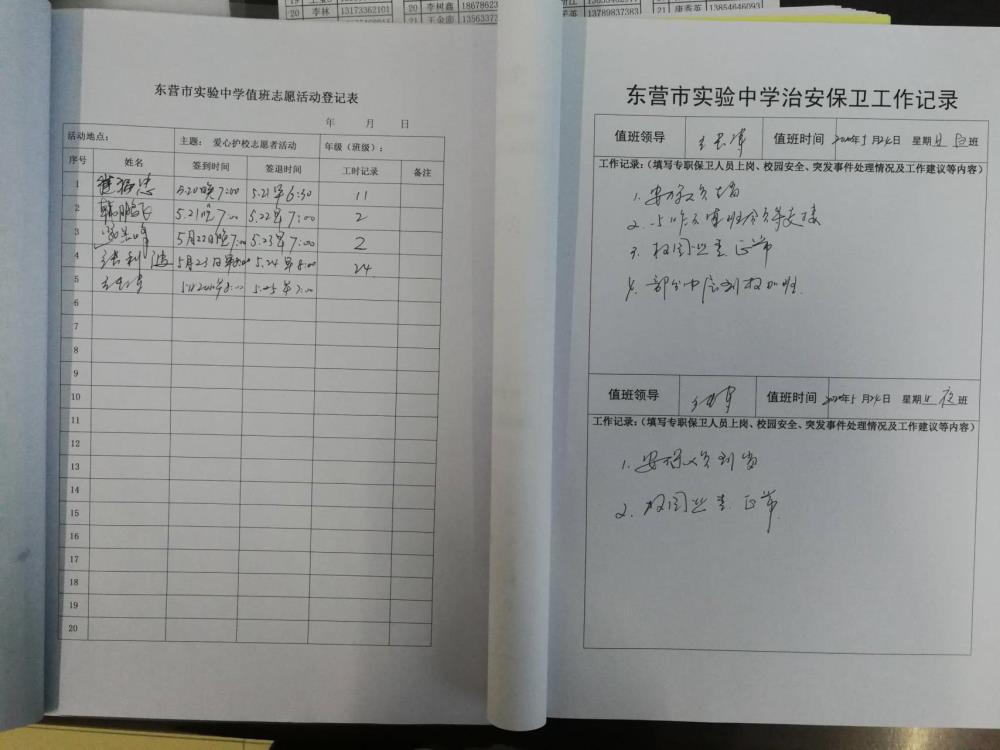 20 李林 13173362101
20 李树鑫 18678623
21 王金南 1356337
13789837383
21 唐秀英 13854646093
东营市实验中学值班志愿活动登记表
年 月 日
活动地点： 主题： 爱心护校志愿者活动 年级（班级）：
序号 姓名 签到时间 签退时间 工时记录 备注
1 5.20晚7:00 5.21早6:30 11
2 韩鹏飞 5.21晚7:00 5.22早7:00 2
3 5月22日晚7:00 5.23早7:00 2
4 张利 5月23日早8:00 5.24早8:00 24
5
6
7
8
9
10
11
12
13
14
15
16
17
18
19
20
东营市实验中学治安保卫工作记录
值班领导 值班时间 2020年5月24日 星期日 白班
工作记录：（填写专职保卫人员上岗、校园安全、突发事件处理情况及工作建议等内容）
1. 安保人员上岗
2. 与昨天值班人员交接
3. 校园巡查正常
4. 部分中层到校加班.
值班领导 值班时间 2020年5月24日 星期日 夜班
工作记录：（填写专职保卫人员上岗、校园安全、突发事件处理情况及工作建议等内容）
1. 安保人员到岗
2. 校园巡查正常